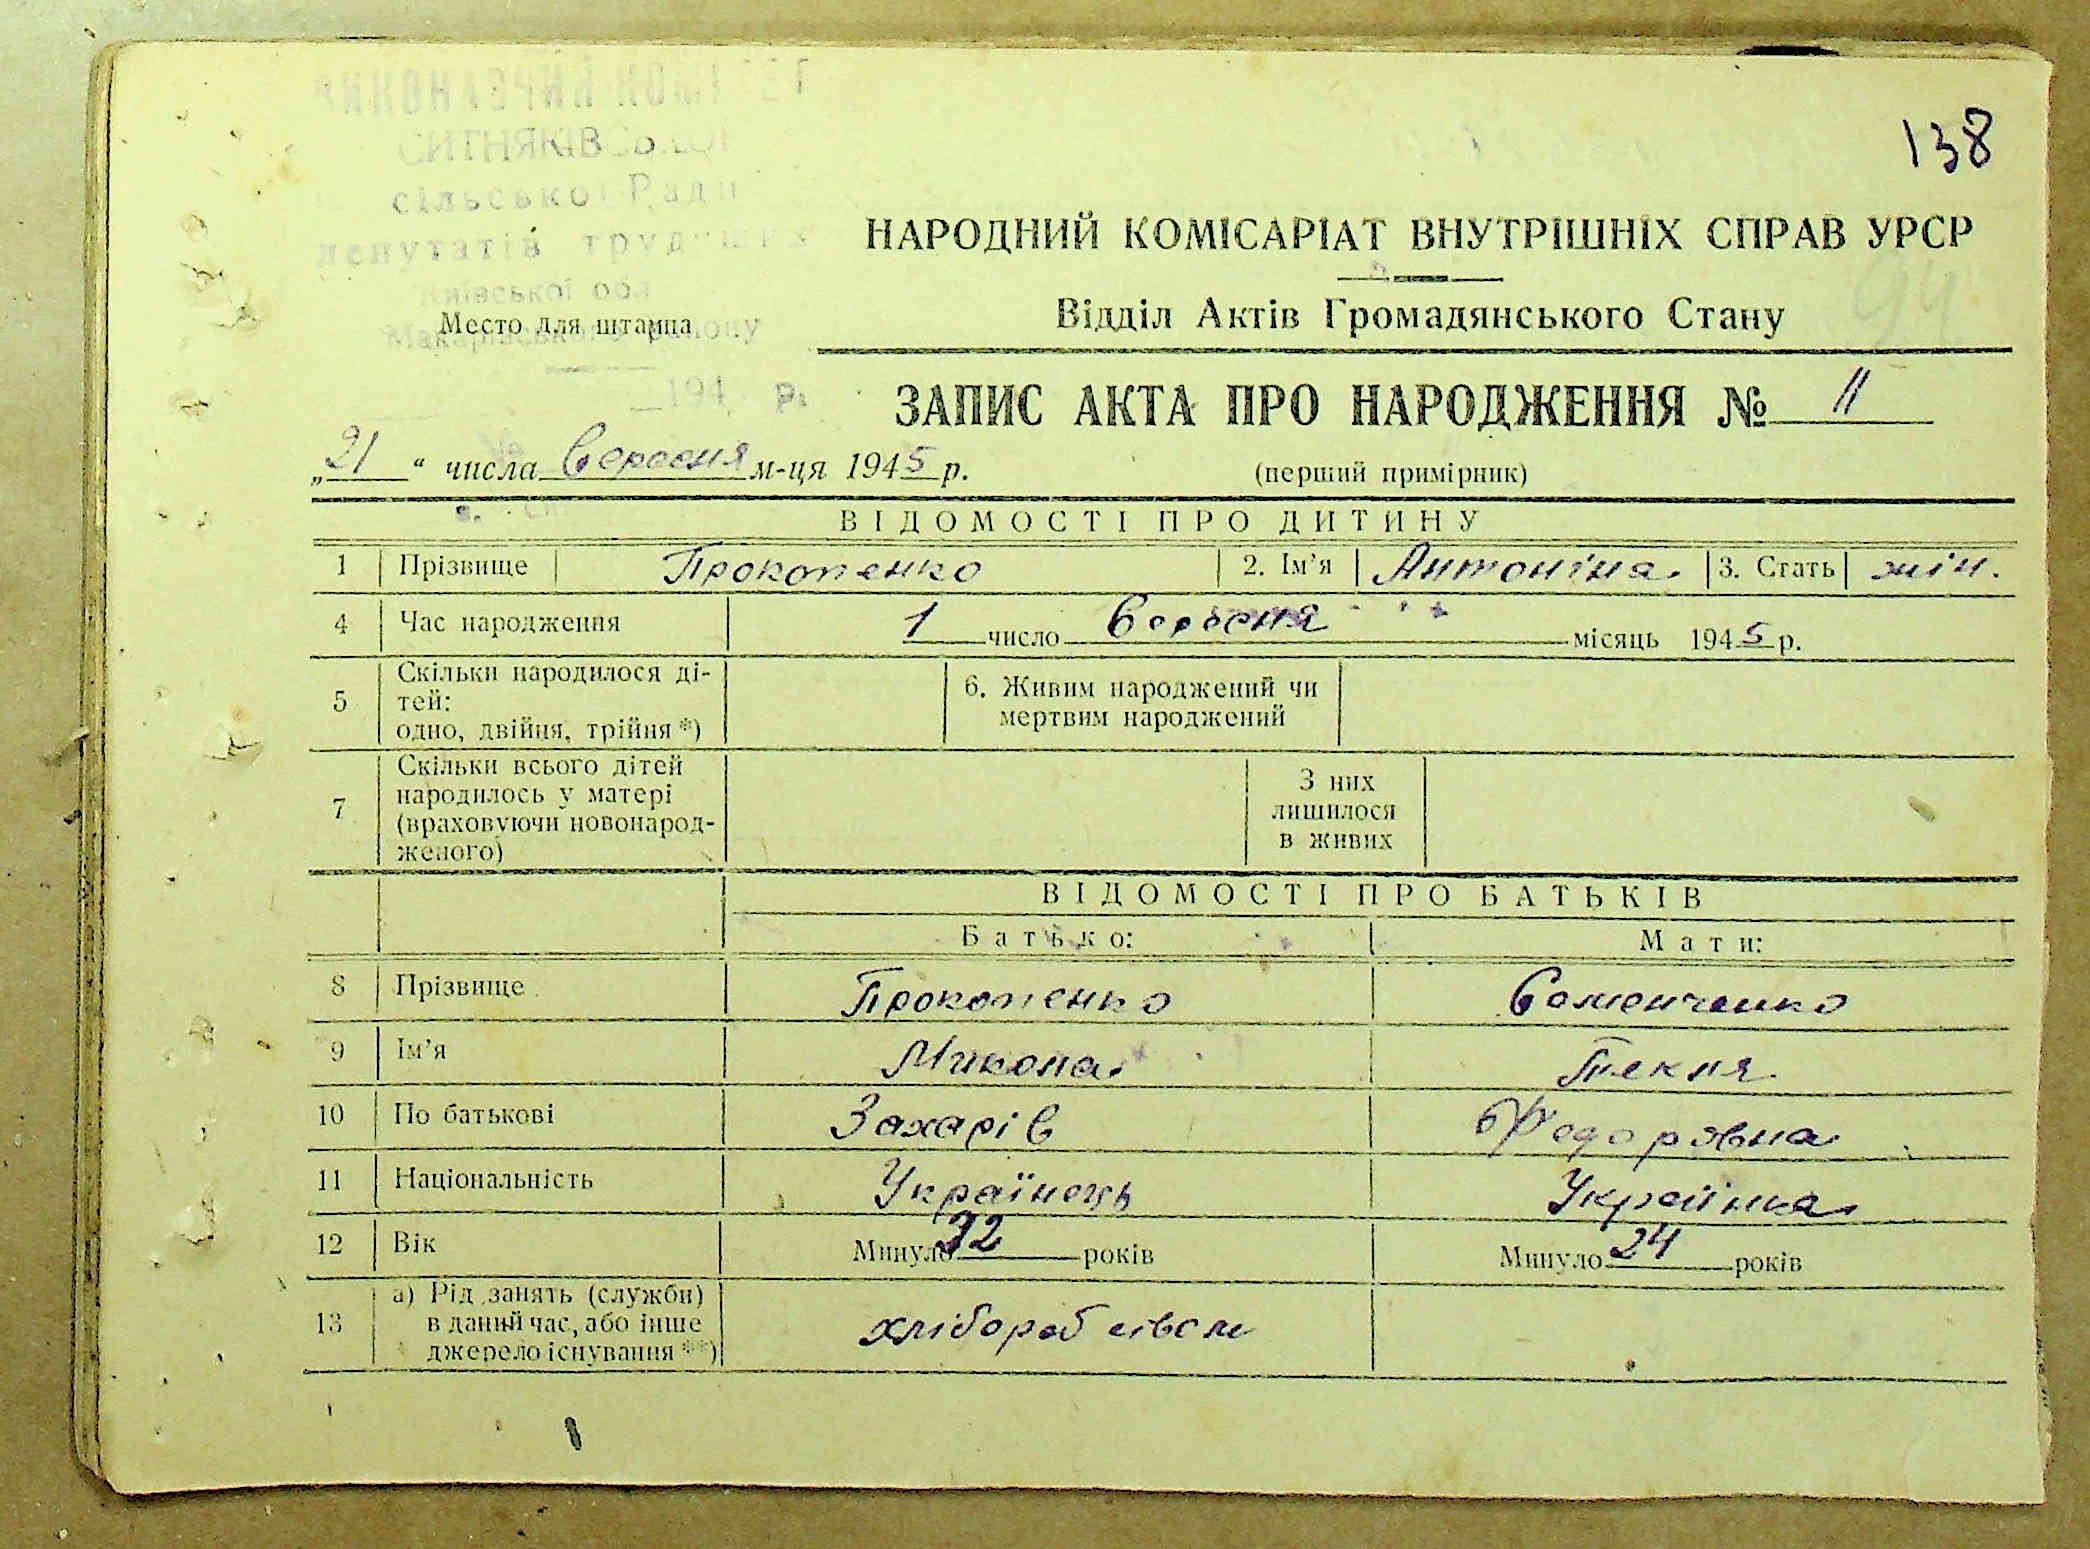 ВИКОНАВЧИЙ КОМІТЕТ
СИТНЯКІВСЬКОЇ
сільської Ради
депутатів трудящих
Київської обл
Макарівського району
Место для штампа
194 р.
138
НАРОДНИЙ КОМІСАРІАТ ВНУТРІШНІХ СПРАВ УРСР
94
Відділ Актів Громадянського Стану
ЗАПИС АКТА ПРО НАРОДЖЕННЯ № 11
„21“ числа Вересня м-ця 1945 р.
(перший примірник)
ВІДОМОСТІ ПРО ДИТИНУ
1 Прізвище Прокопенко 2. Ім'я Антоніна 3. Стать жін.
4 Час народження 1 число Вересня місяць 1945 р.
5 Скільки народилося ді-
тей:
одно, двійня, трійня *)
6. Живим народжений чи
мертвим народжений
7 Скільки всього дітей
народилось у матері
(враховуючи новонарод-
женого)
З них
лишилося
в живих
ВІДОМОСТІ ПРО БАТЬКІВ
Батько: Мати:
8 Прізвище Прокопенко Семенченко
9 Ім'я Микола Текля
10 По батькові Захарів Федорівна
11 Національність Українець Українка
12 Вік Минуло 32 років Минуло 24 років
13 а) Рід занять (служби)
в даний час, або інше
джерело існування **)
хлібороб